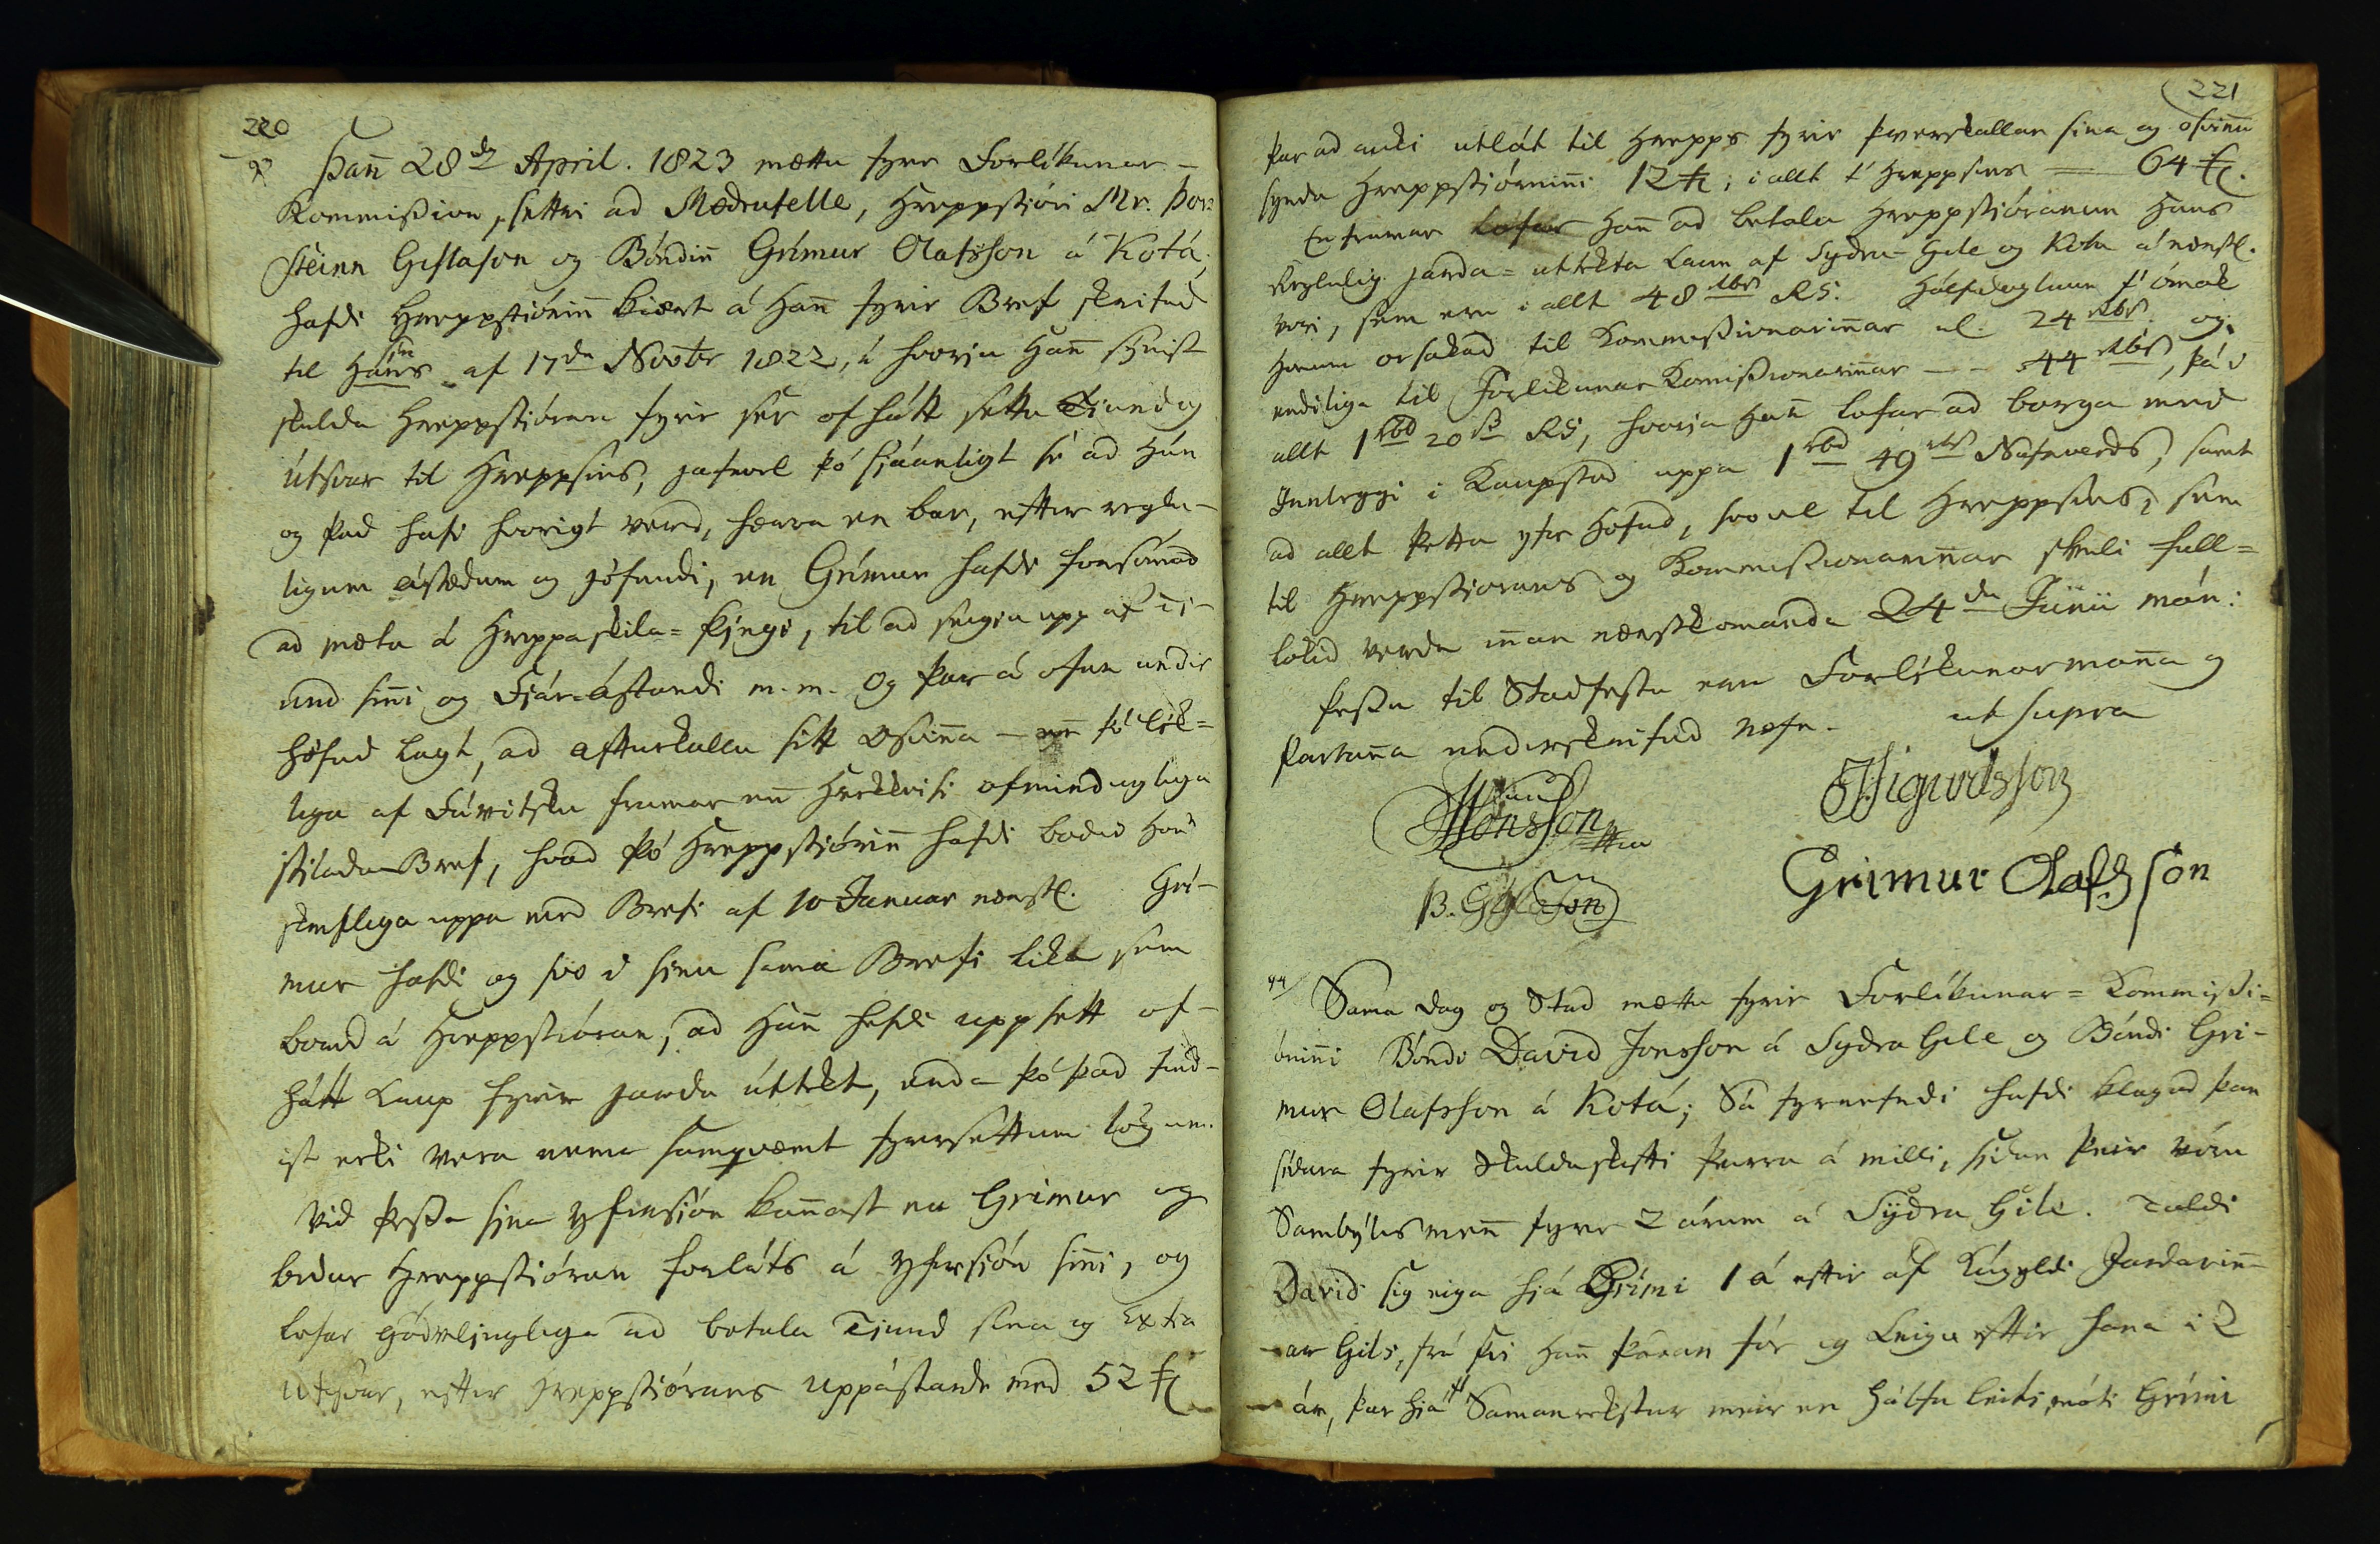 220
Þan̄ 28da April. 1823 mættu fyrer Forlíkunar-
Kommission, settri ad Mødrufelle, Hreppstióri Mr. Þor-
steinn Gislason og Bóndin̄ Grímur Olafsson á Kotá,
hafdi Hreppstiórin̄ kiært á han̄ fyrir Bref skrifad
til Hans af 17da Novbr 1822, í hvoriu Han̄ synist
skulda Hreppstióran fyrir sér of hátt setta Tiund og
útsvar til Hreppsins, jafnvel þó siáanligt sé ad hún
og þad hafi hvorigt verid, hærra en bar, eftir reglu-
ligum ástædum og jöfnudi, en Grímur hafdi forsómad
ad mæta á Hreppaskila-þíngi, til ad segia upp af Ti-
und sin̄i og Fiár-ástandi m.m. Og þar á ofan undir
höfud lagt, ad afturkalla sitt ósan̄a - en̄ þó lík-
liga af Fávitsku framar en̄ Hrekkvísi ofmindugliga
stilada Bref, hvad þó Hreppstiórin̄ hafdi bodid hon̄
skrifliga uppa med Brefi af 10 Januar næstl. Grí-
mur hafdi og svo í sinu sama Brefi likt sem
borid á Hreppstióran, ad Han̄ hefdi uppsett of-
hátt Laup fyrir jarda úttekt, enda þó þad find-
ist ecki vera nema samqvæmt fyrersettum lögum.
Vid þessa sina yfirsión kan̄ast nu Grimur og
bidur Hreppstióran forláts á yfirsión sin̄i, og
lofar gódviljugliga ad betala Tiund sina og Extra
útsvar, eftir Hreppstiórans uppástande med 52 f
221
þar ad auki utlát til Hrepps fyrir þverskallan sina og
synda Hreppstiórnin̄i 12 f; i allt t' Hreppsins = 64 f.
En framar lofar Han̄ ad betala Hreppstióranum Hans
Reglulig jarda-úttekta Laun af Sydra-Gile og Kotá á næstl.
vori, sem eru i allt 48 rbs RS. Hálfdaglaun f' ómak
Honum orsakad til Kommissionarin̄ar al. 24 rbs og
endiliga til Forlikunar Komissionarin̄ar -- 44 rbs, þá í
allt 1 rbd 20 s RS, hvoria han̄ lofar ad borga med
Innleggi i Kaupstad uppa 1 rbd 49 rbs Nafnverds, samt
ad allt þetta yfir Höfud, svo vel til Hreppsins, sem
til Hreppstiorans og Kommissionarin̄ar skuli full-
lokid verda in̄an næstkomanda 24da Junii mán:
Þessu til Stadfestu eru Forlíkunarman̄a og
Partan̄a undirskrifud nöfn. ut supra
JSigurdsson
Jonsson
Þ. Gislason
Grimur Olafsson
44/ Sama dag og Stad mættu fyrir Forlíkunar-Kommissi-
ónin̄i Bóndi David Jonsson á Sydra Gile og Bóndi Gri-
mur Olafsson á Kotá; Sá fyrrnefndi hafdi klagad þan
sidara fyrir Skuldaskifti þeirra á milli, sidan þeir vóru
Sambýlismen̄ fyrer 2 árum á Sydra Gile. Taldi
David sig eiga hjá Grími 1 á eftir af Kúgyldi Jardarin̄-
ar Gils, frá því han̄ þadan fór og Leigu eftir hana i 2
ár, þar hiá Samanrekstur meir en hálfu leiti, móti Grími